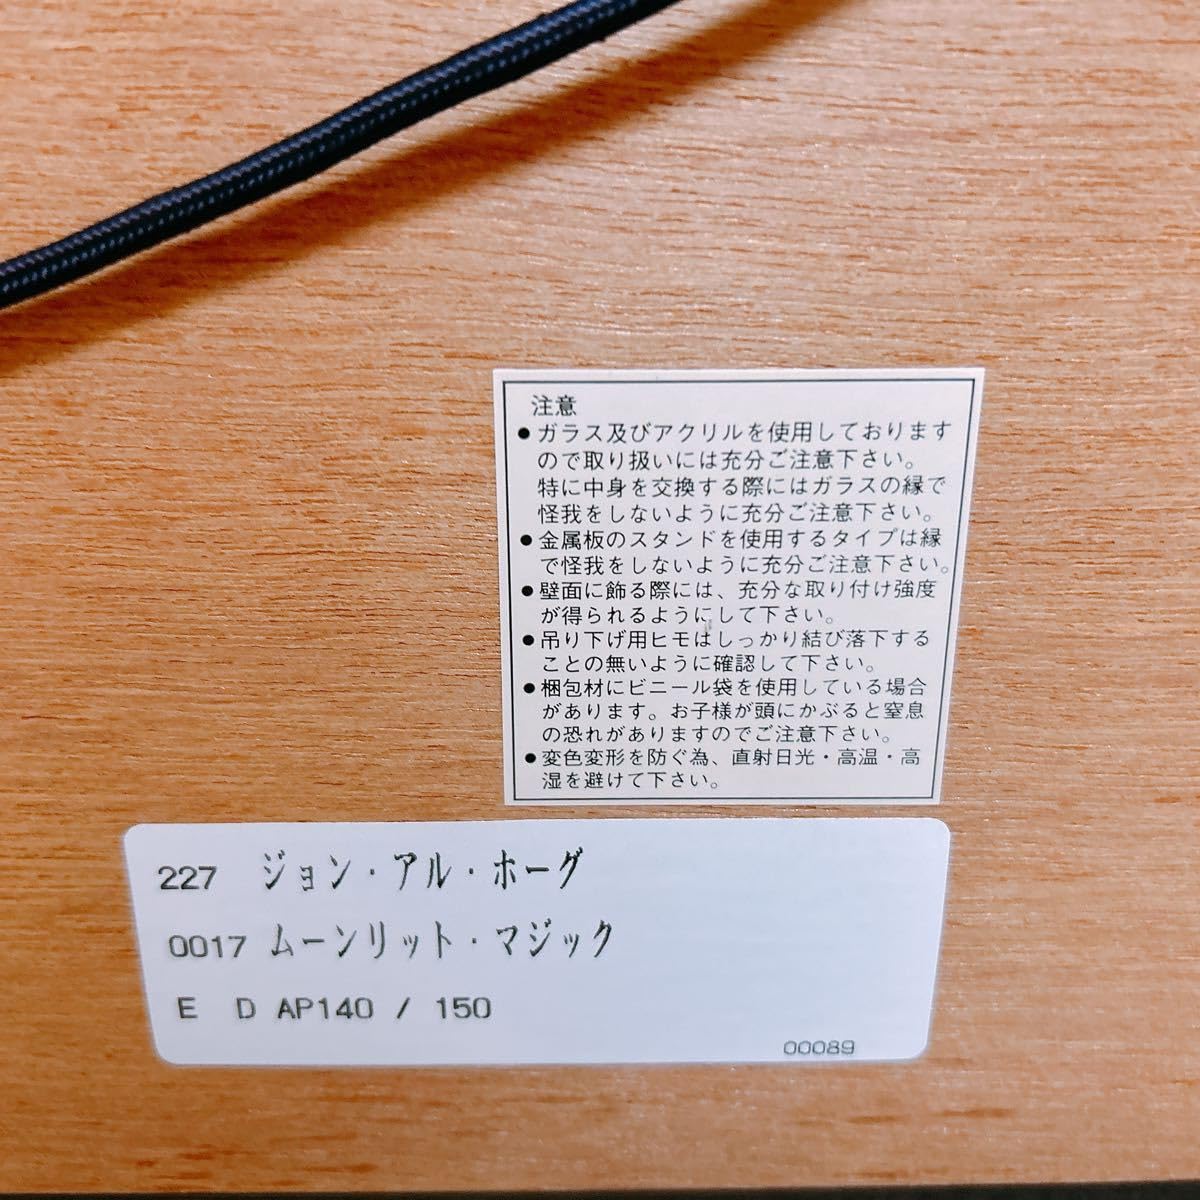 注意
●ガラス及びアクリルを使用しております
ので取り扱いには充分ご注意下さい。
特に中身を交換する際にはガラスの縁で
怪我をしないように充分ご注意下さい。
●金属板のスタンドを使用するタイプは縁
で怪我をしないように充分ご注意下さい。
●壁面に飾る際には、充分な取り付け強度
が得られるようにして下さい。
●吊り下げ用ヒモはしっかり結び落下する
ことの無いように確認して下さい。
●梱包材にビニール袋を使用している場合
があります。お子様が頭にかぶると窒息
の恐れがありますのでご注意下さい。
●変色変形を防ぐ為、直射日光・高温・高
湿を避けて下さい。
227 ジョン・アル・ホーグ
0017 ムーンリット・マジック
E D AP140 / 150
00089